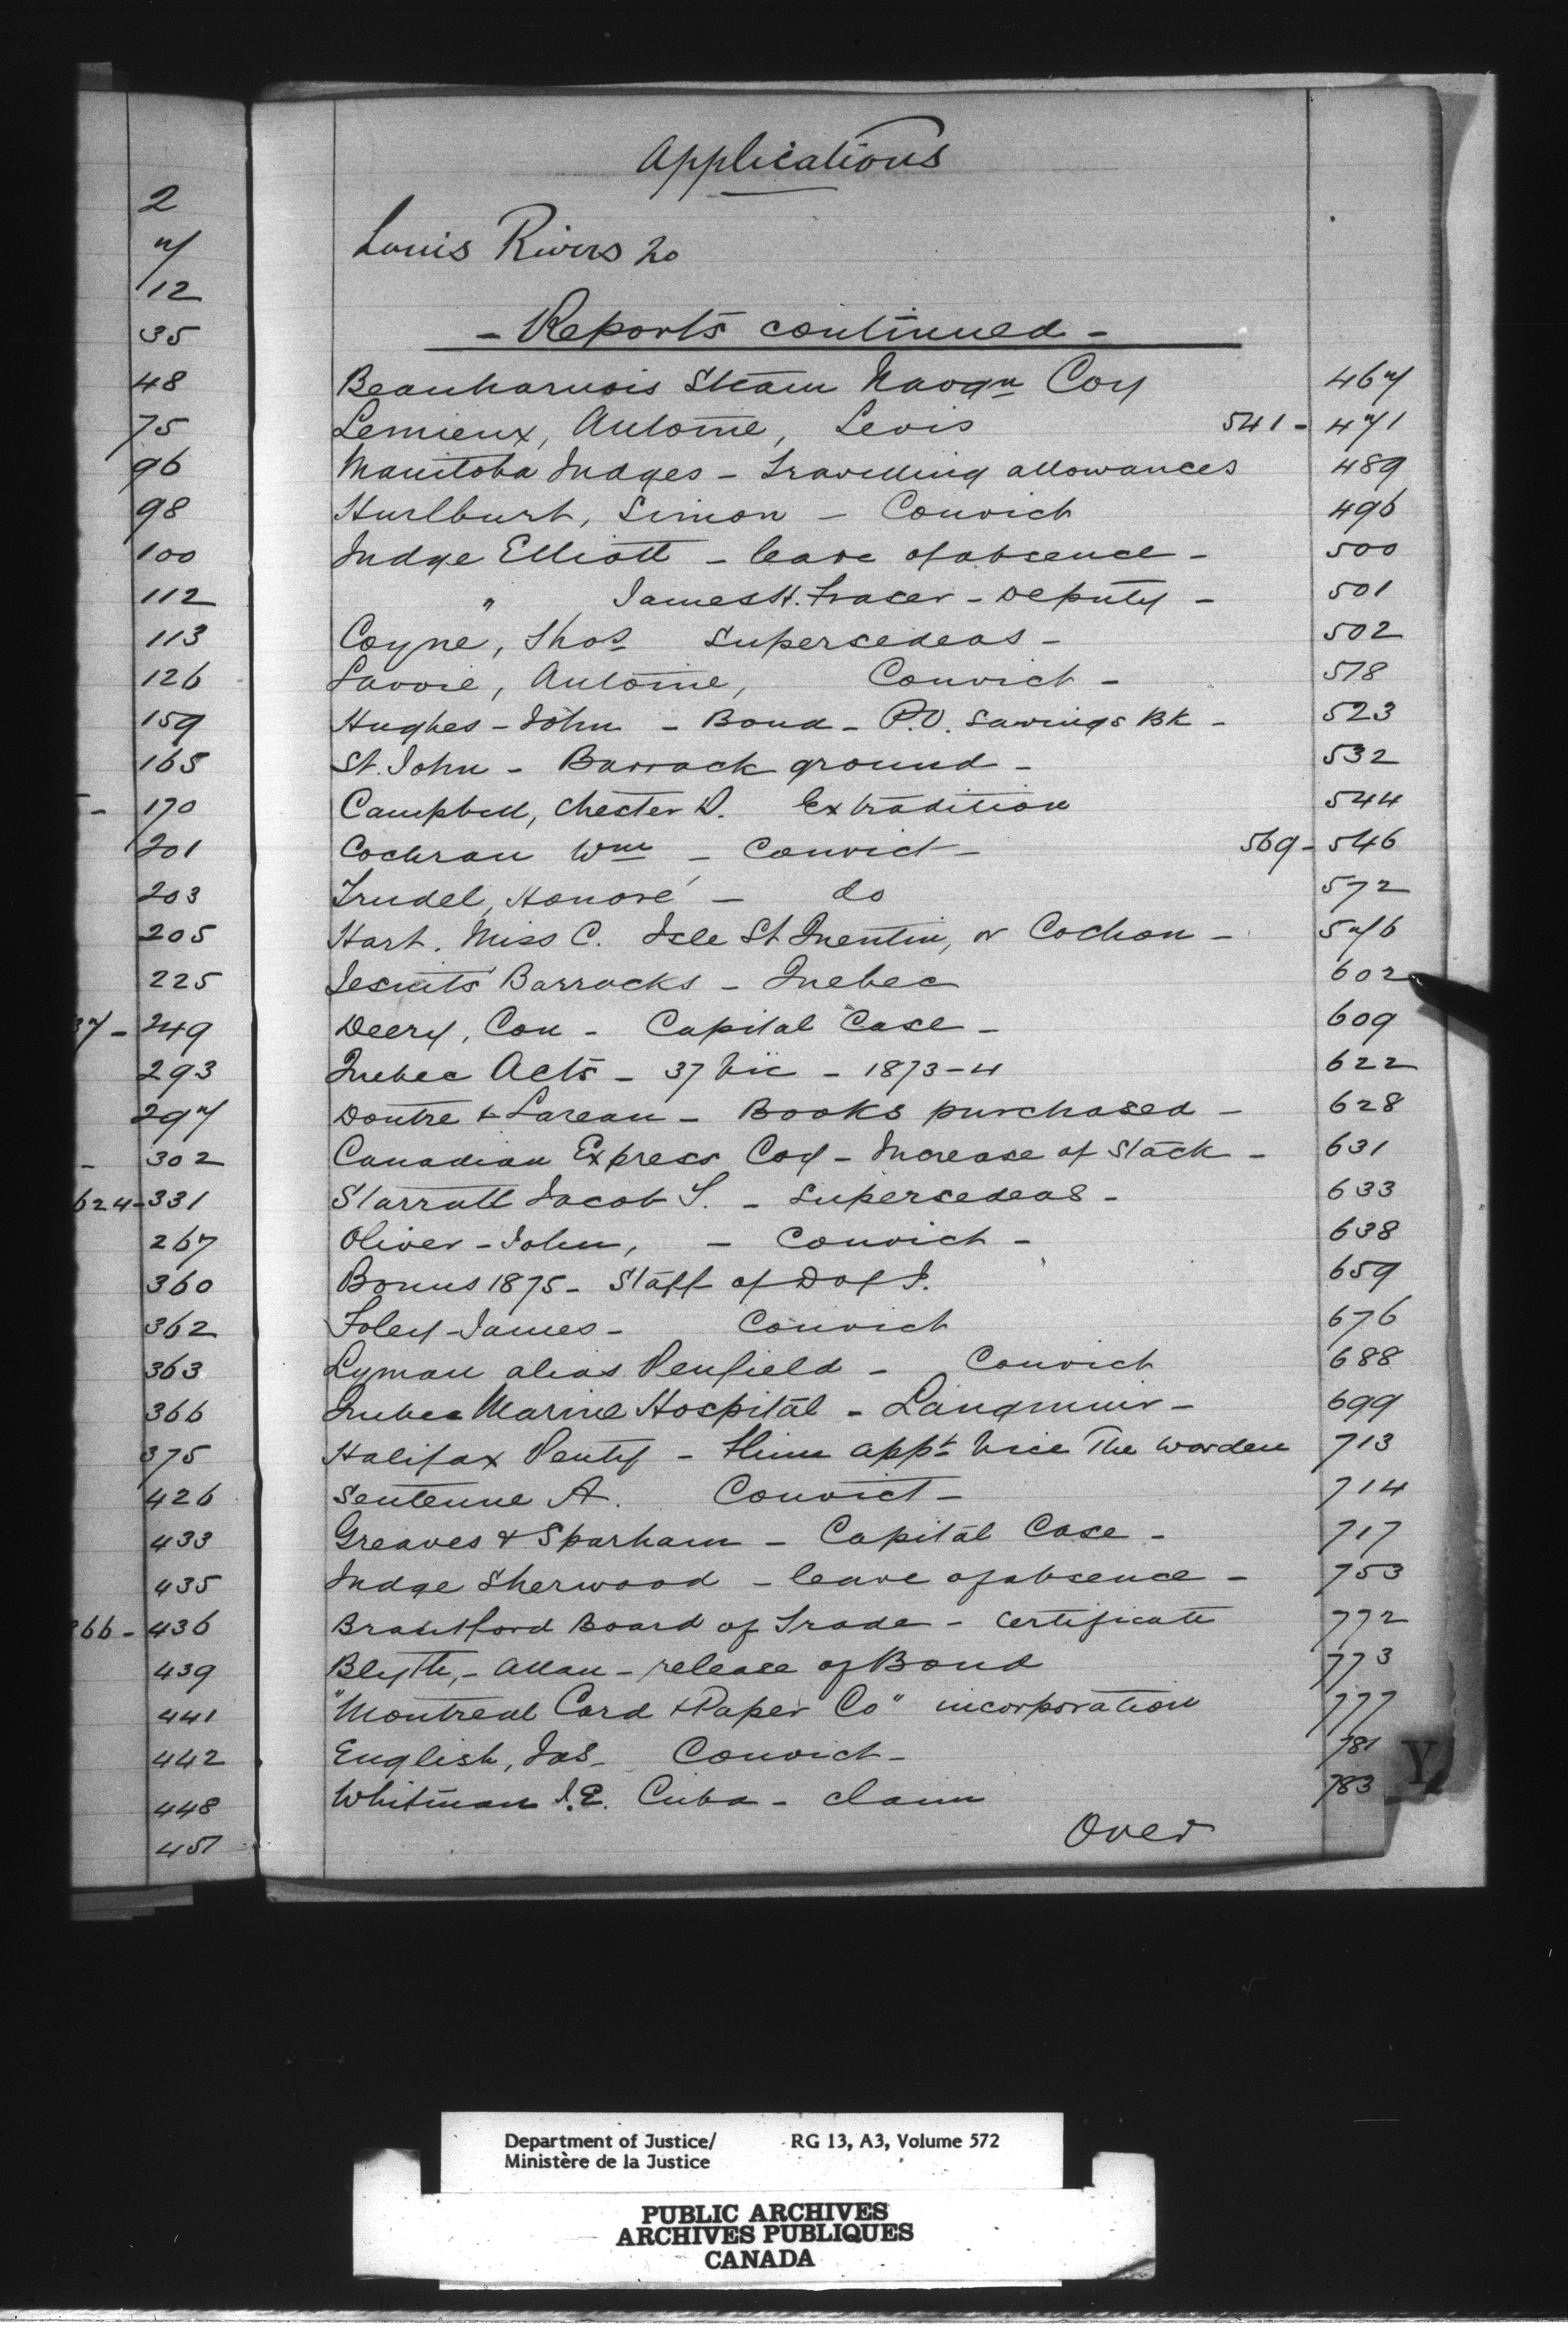 2
7
12
35
48
75
96
98
100
112
113
126
159
165
- 170
201
203
205
225
37 - 249
293
297
- 302
624 - 331
267
360
362
363
366
375
426
433
435
366 - 436
439
441
442
448
451
Applications
Louis Rivers 20
- Reports continued -
Beauharnois Steam Navgn Coy 467
Lemieux, Antoine, Levis 541 - 471
Manitoba Judges - Travelling allowances 489
Hurlburt, Simon - Convict 496
Judge Elliott - leave of absence - 500
" James H. Fraser - Deputy - 501
Coyne, Thos Supersedeas - 502
Lavoie, Antoine, Convict - 518
Hughes - John - Bond - P.O. Savings Bk - 523
St. John - Barrack ground - 532
Campbell, Chester D. Extradition 544
Cochran Wm - Convict - 569 - 546
Trudel, Honoré - do 572
Hart, Miss C. Isle St Quentin, or Cochon - 576
Jesuits Barracks - Quebec 602
Deery, Con - Capital Case - 609
Quebec Acts - 37 Vic - 1873-4 622
Doutre & Lareau - Books purchased - 628
Canadian Express Coy - Increase of Stock - 631
Starratt Jacob S. - Supersedeas - 633
Oliver - John, - Convict - 638
Bonus 1875 - Staff of D of J. 659
Foley - James - Convict 676
Lyman alias Penfield - Convict 688
Quebec Marine Hospital - Langmuir - 699
Halifax Penty - Flinn appt vice The Warden 713
Sentenne A. Convict - 714
Greaves & Sparham - Capital Case - 717
Judge Sherwood - leave of absence - 753
Brantford Board of Trade - Certificate 772
Blyth, - Allan - release of Bond 773
"Montreal Card & Paper Co" incorporation 777
English, Jas - Convict - 781
Whitman J.E. Cuba - claim 783
Over
Y
Department of Justice/ RG 13, A3, Volume 572
Ministère de la Justice
PUBLIC ARCHIVES
ARCHIVES PUBLIQUES
CANADA